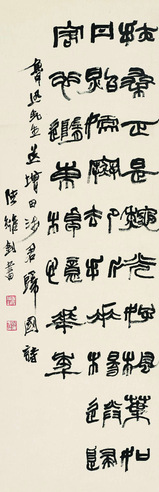 扶桑正是秋光好楓葉如
丹照嫩寒却折垂楊送歸
客心隨東棹憶華年
魯迅先生送增田涉君歸國詩
陸維釗書